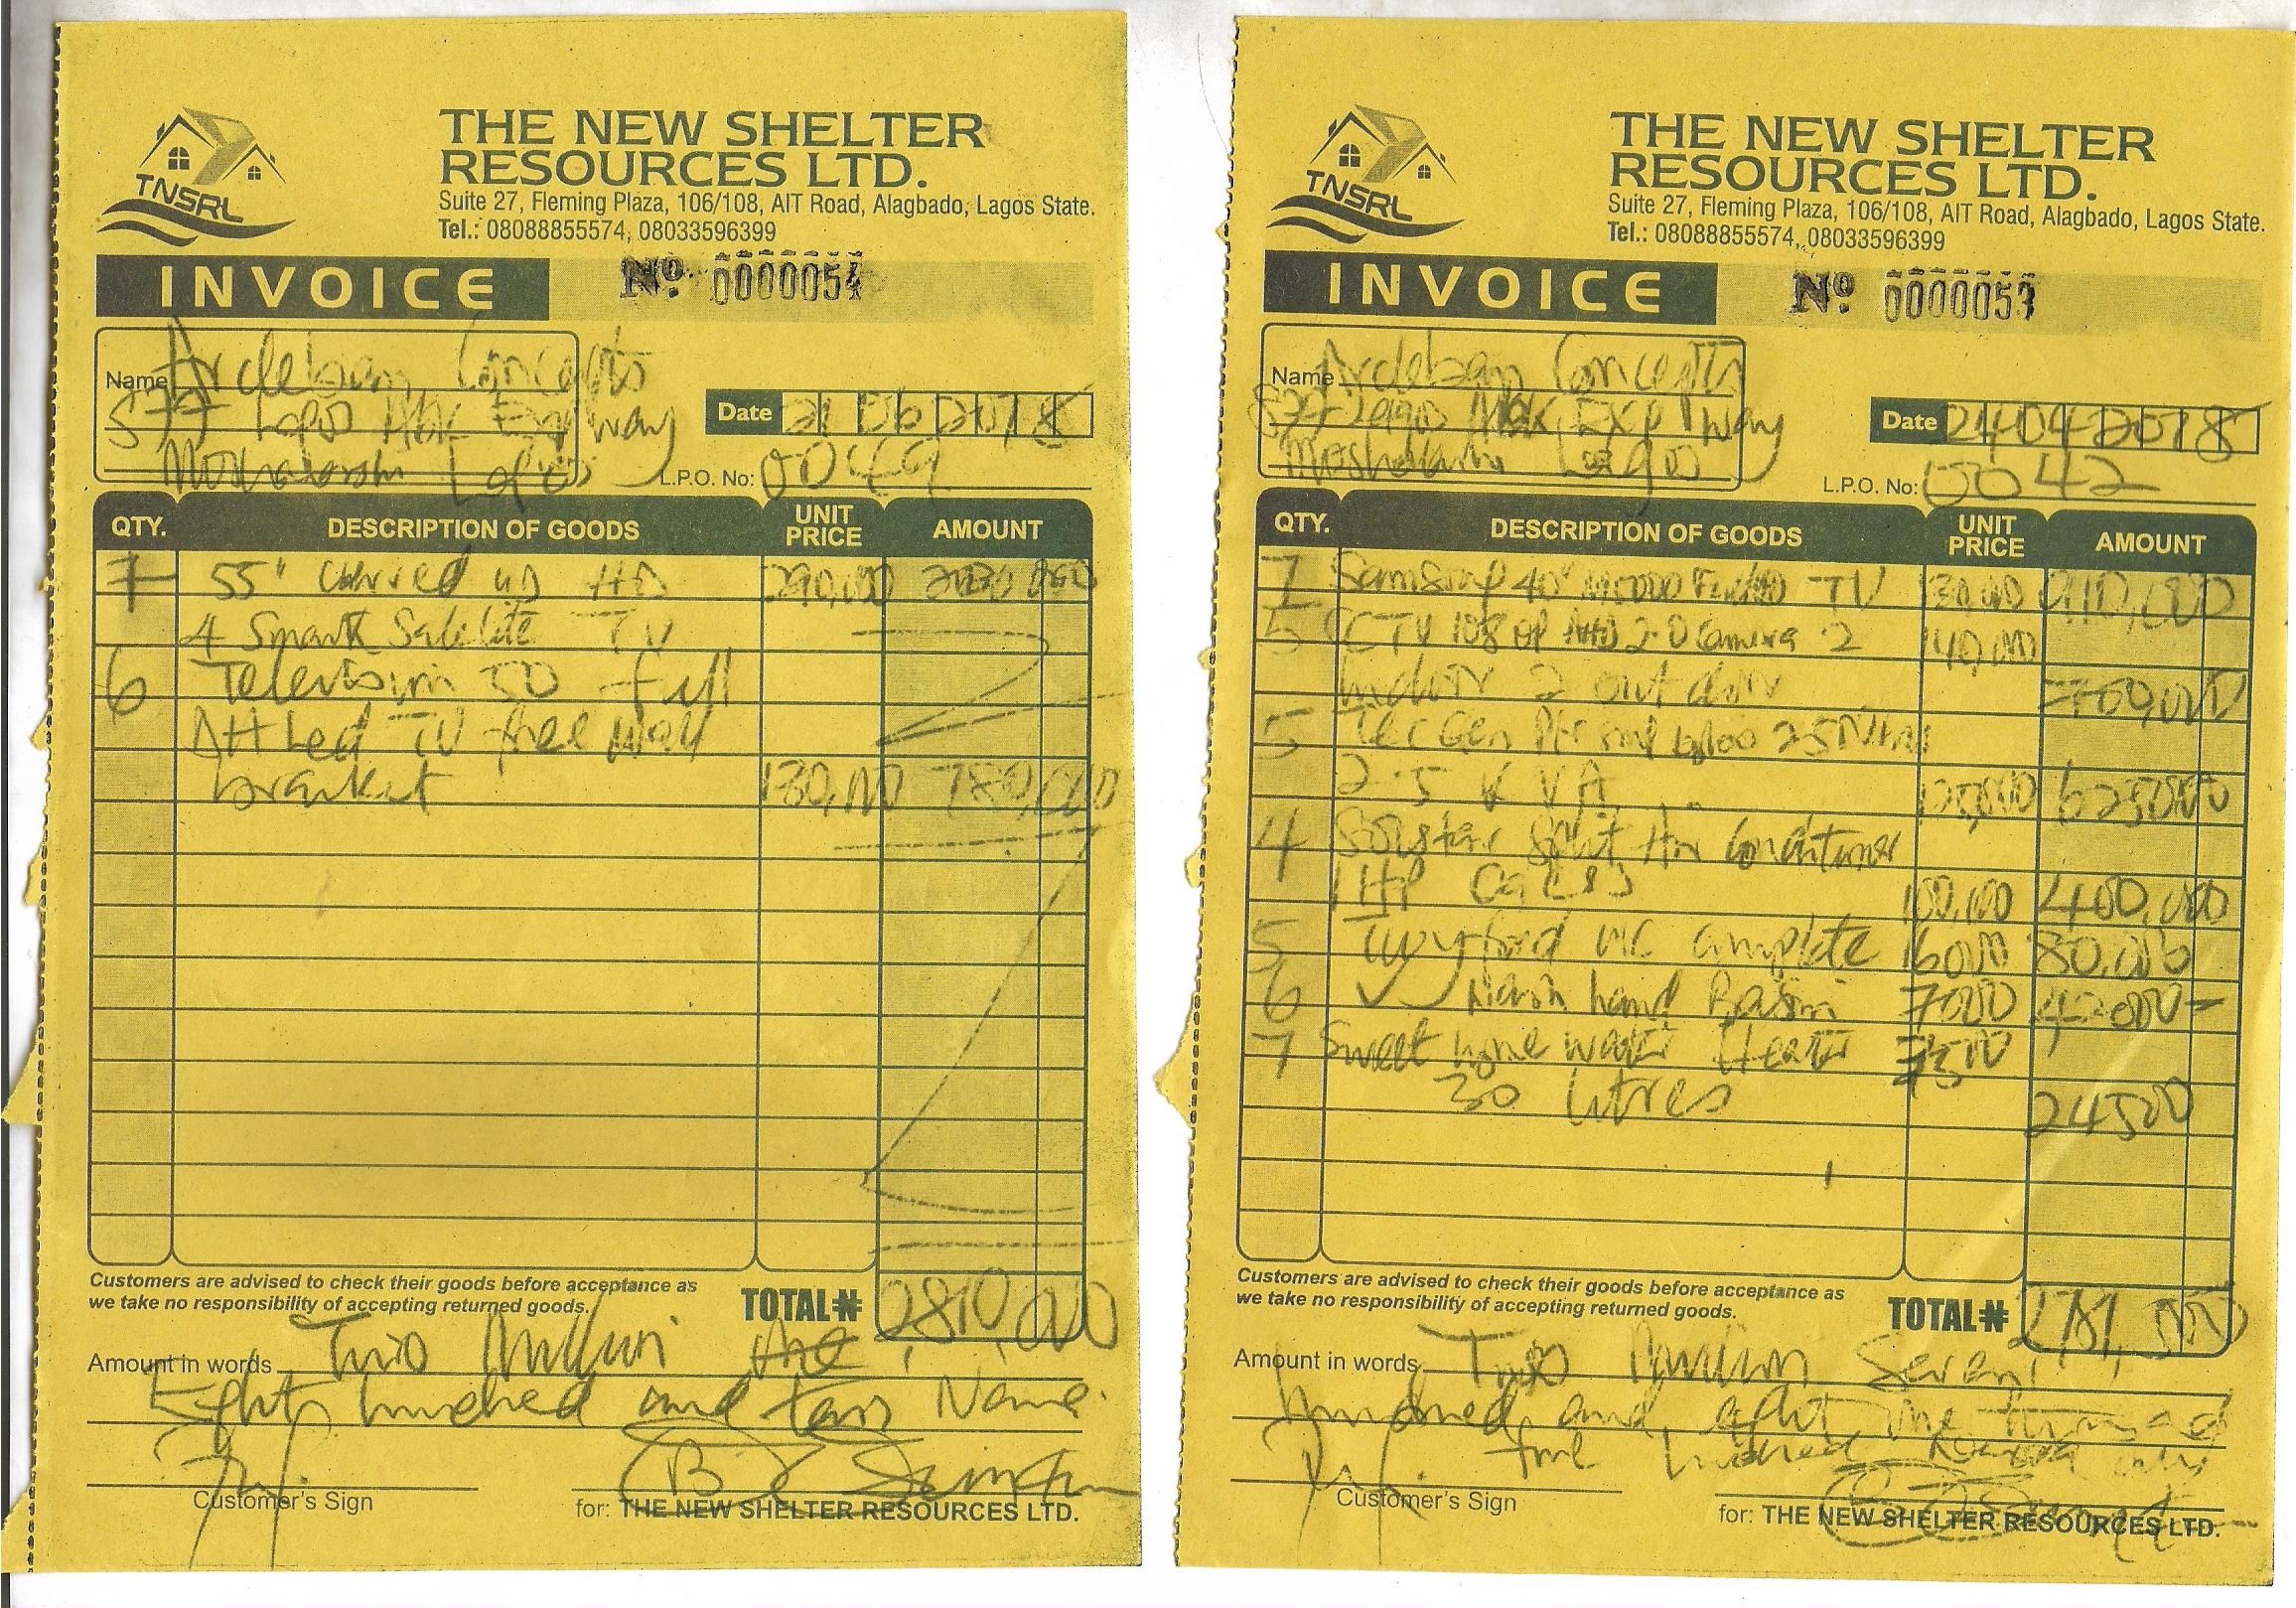 TNSRL
THE NEW SHELTER
RESOURCES LTD.
Suite 27, Fleming Plaza, 106/108, AIT Road, Alagbado, Lagos State.
Tel.: 08088855574, 08033596399
INVOICE
Nº. 0000054
Name Ardeban Concepts
577 Lagos Abk Exp way
Moshalashi Lagos
Date 21 06 2018
L.P.O. No: 0049
QTY. DESCRIPTION OF GOODS UNIT PRICE AMOUNT
7 55" Curved HD 290,000
4 Smart Satelite TV
6 Television 50 full
Led TV free wall
bracket 130,000 780,000
Customers are advised to check their goods before acceptance as
we take no responsibility of accepting returned goods.
TOTAL ₦ 2810,000
Amount in words Two Million
Eight hundred and ten Naira
Customer's Sign
for: THE NEW SHELTER RESOURCES LTD.
TNSRL
THE NEW SHELTER
RESOURCES LTD.
Suite 27, Fleming Plaza, 106/108, AIT Road, Alagbado, Lagos State.
Tel.: 08088855574, 08033596399
INVOICE
Nº. 0000053
Name Ardeban Concepts
577 Lagos Abk Exp way
Moshalashi Lagos
Date 24 04 2018
L.P.O. No: 0042
QTY. DESCRIPTION OF GOODS UNIT PRICE AMOUNT
7 Samsung 40" M5000 Full HD TV 130,000 910,000
5 CCTV 1080P AHD 2.0 Camera 2 140,000
indoor 2 out door 700,000
5 Tec Gen
2.5 KVA 125,000 625000
4 Split Air Conditioner
1HP 100,000 400,000
5 Twyford WC complete 16000 80,000
6 ✓ hand Basin 7000 42000
7 Sweet home water Heater 3500
30 litres 24500
Customers are advised to check their goods before acceptance as
we take no responsibility of accepting returned goods.
TOTAL ₦ 2781,500
Amount in words Two Million Seven
hundred and eight one thousand
five hundred Naira only
Customer's Sign
for: THE NEW SHELTER RESOURCES LTD.